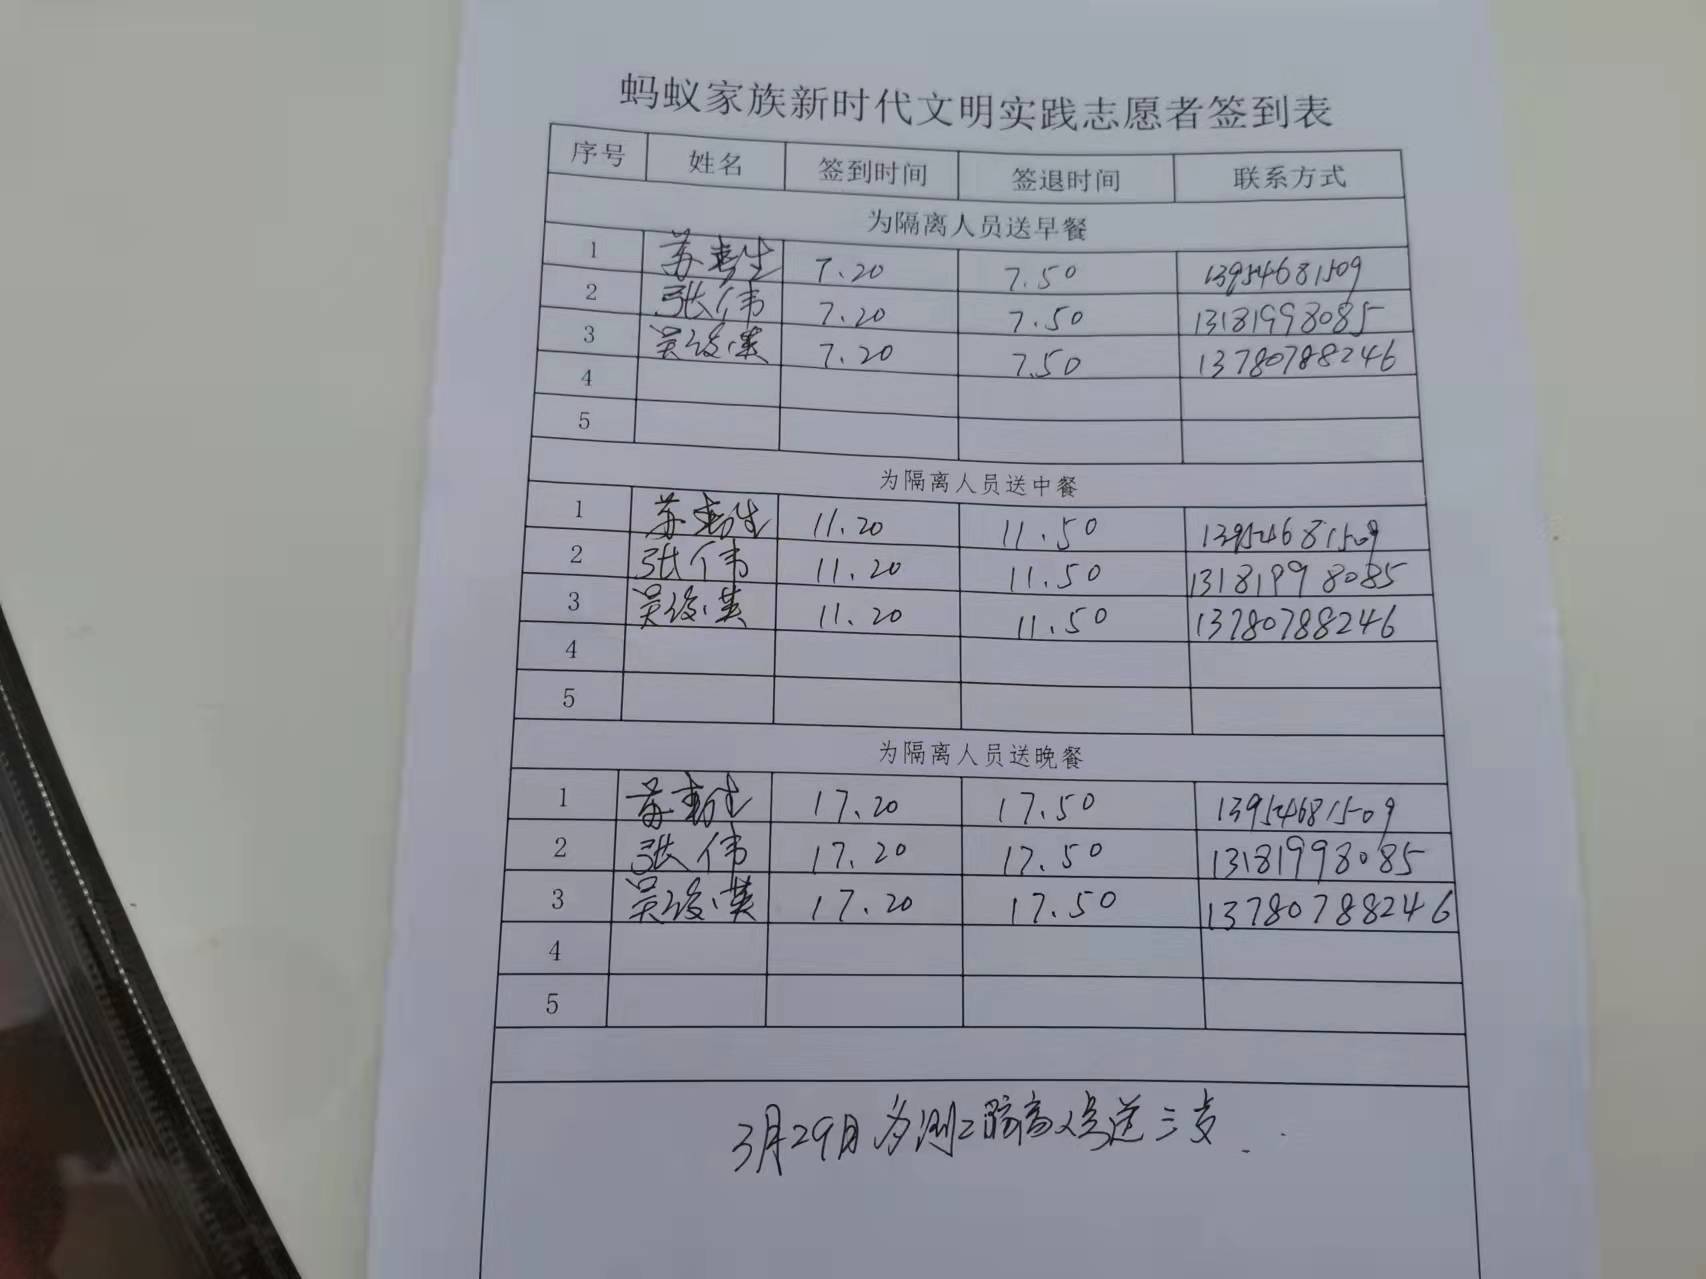 蚂蚁家族新时代文明实践志愿者签到表
序号 姓名 签到时间 签退时间 联系方式
为隔离人员送早餐
1 苏寿生 7.20 7.50 13954681509
2 张伟 7.20 7.50 13181998085
3 吴俊英 7.20 7.50 13780788246
4
5
为隔离人员送中餐
1 苏寿生 11.20 11.50 13954681509
2 张伟 11.20 11.50 13181998085
3 吴俊英 11.20 11.50 13780788246
4
5
为隔离人员送晚餐
1 苏寿生 17.20 17.50 13954681509
2 张伟 17.20 17.50 13181998085
3 吴俊英 17.20 17.50 13780788246
4
5
3月29日为测2隔离人员送三支